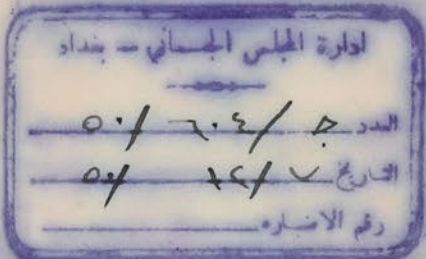 ادارة المجلس الجسماني – بغداد
العدد ج / ٦٠٤ / ٥٠
التاريخ ٧ / ١٢ / ٥٠
رقم الاضباره